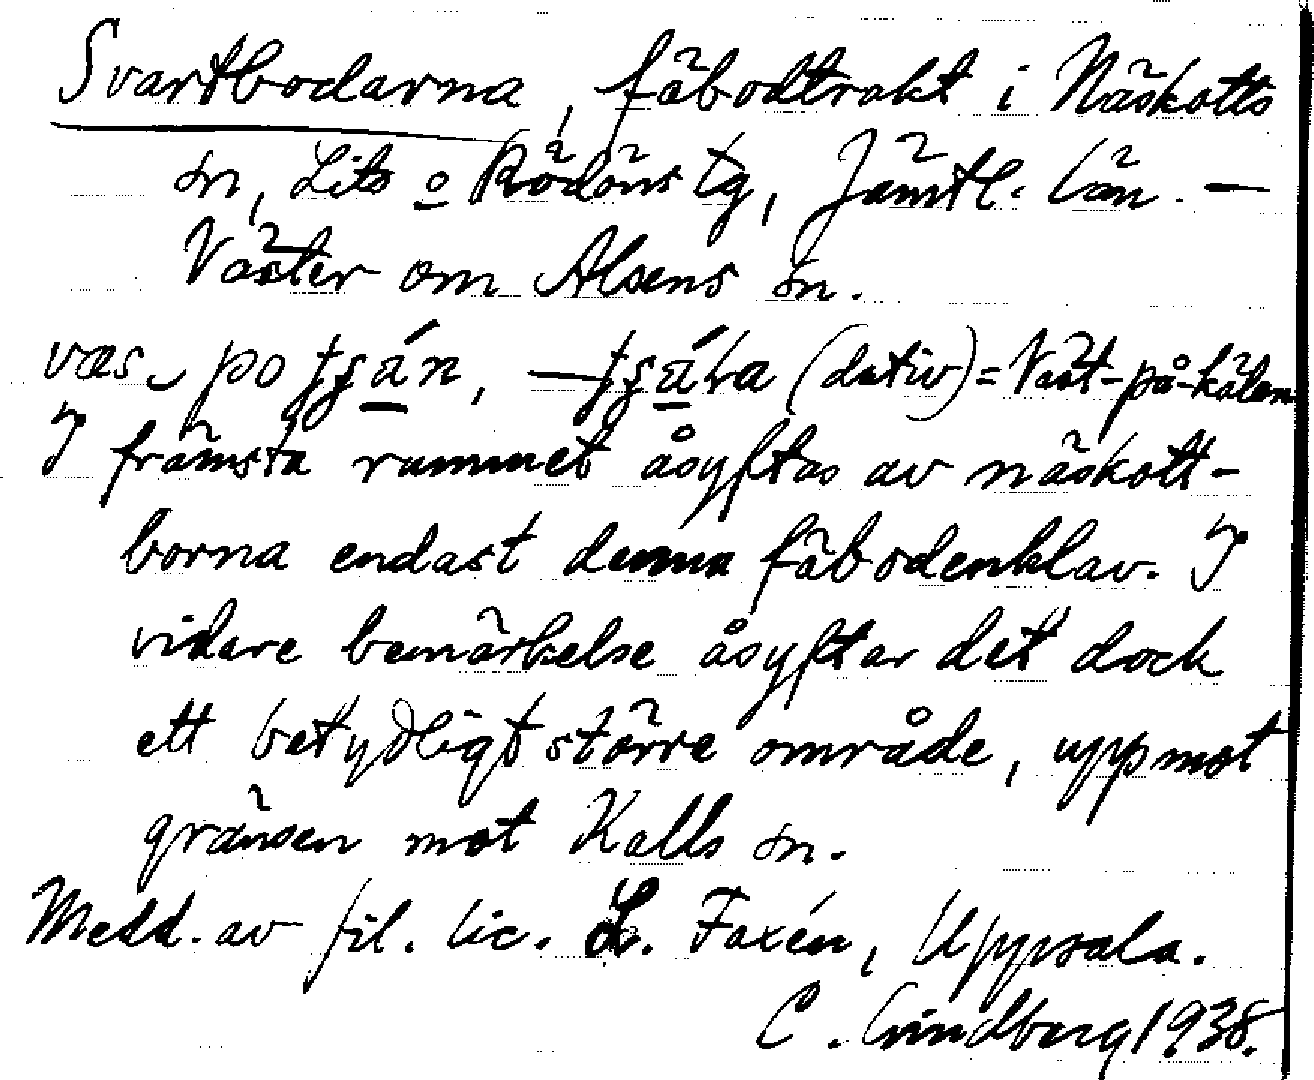 Svartbodarna, fäbodtrakt i Näskotts
sn, Lits o Rödöns tg, Jämtl. län. —
Väster om Alsens sn.
væs‿ po (dativ) = Väst-på-kälen
I främsta rummet åsyftas av näskott-
borna endast denna fäbodenklav. I
vidare bemärkelse åsyftar det dock
ett betydligt större område, upp mot
gränsen mot Kalls sn.
Medd. av fil. lic. L. Faxén, Uppsala.
C. Lindberg 1938.